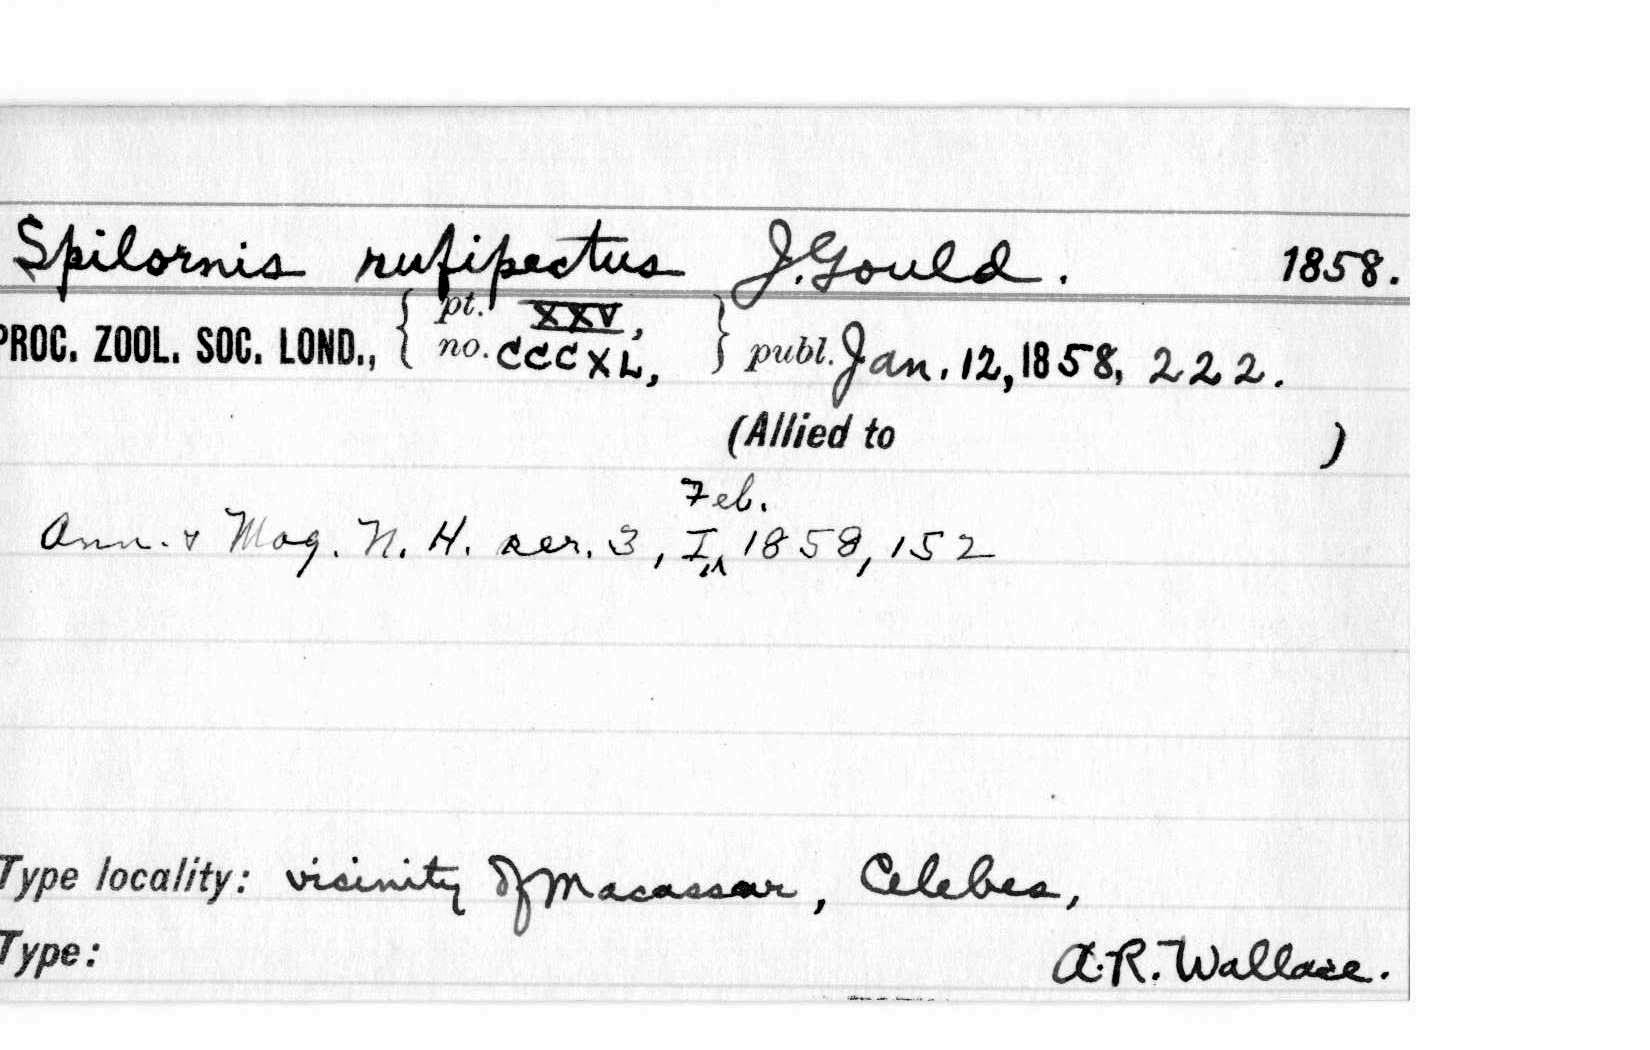 Spilornis rufipectus J. Gould. 1858.
PROC. ZOOL. SOC. LOND., { pt. XXV, no. CCCXL, } publ. Jan. 12, 1858, 222.
(Allied to )
Feb.
Ann. & Mag. N. H. ser. 3, I, 1858, 152
Type locality: vicinity of Macassar, Celebes,
Type: A.R. Wallace.